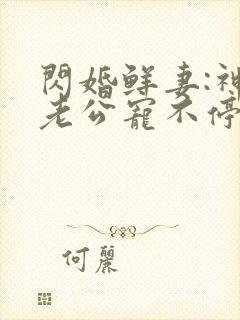 閃婚鮮妻:神
老公寵不停
何麗